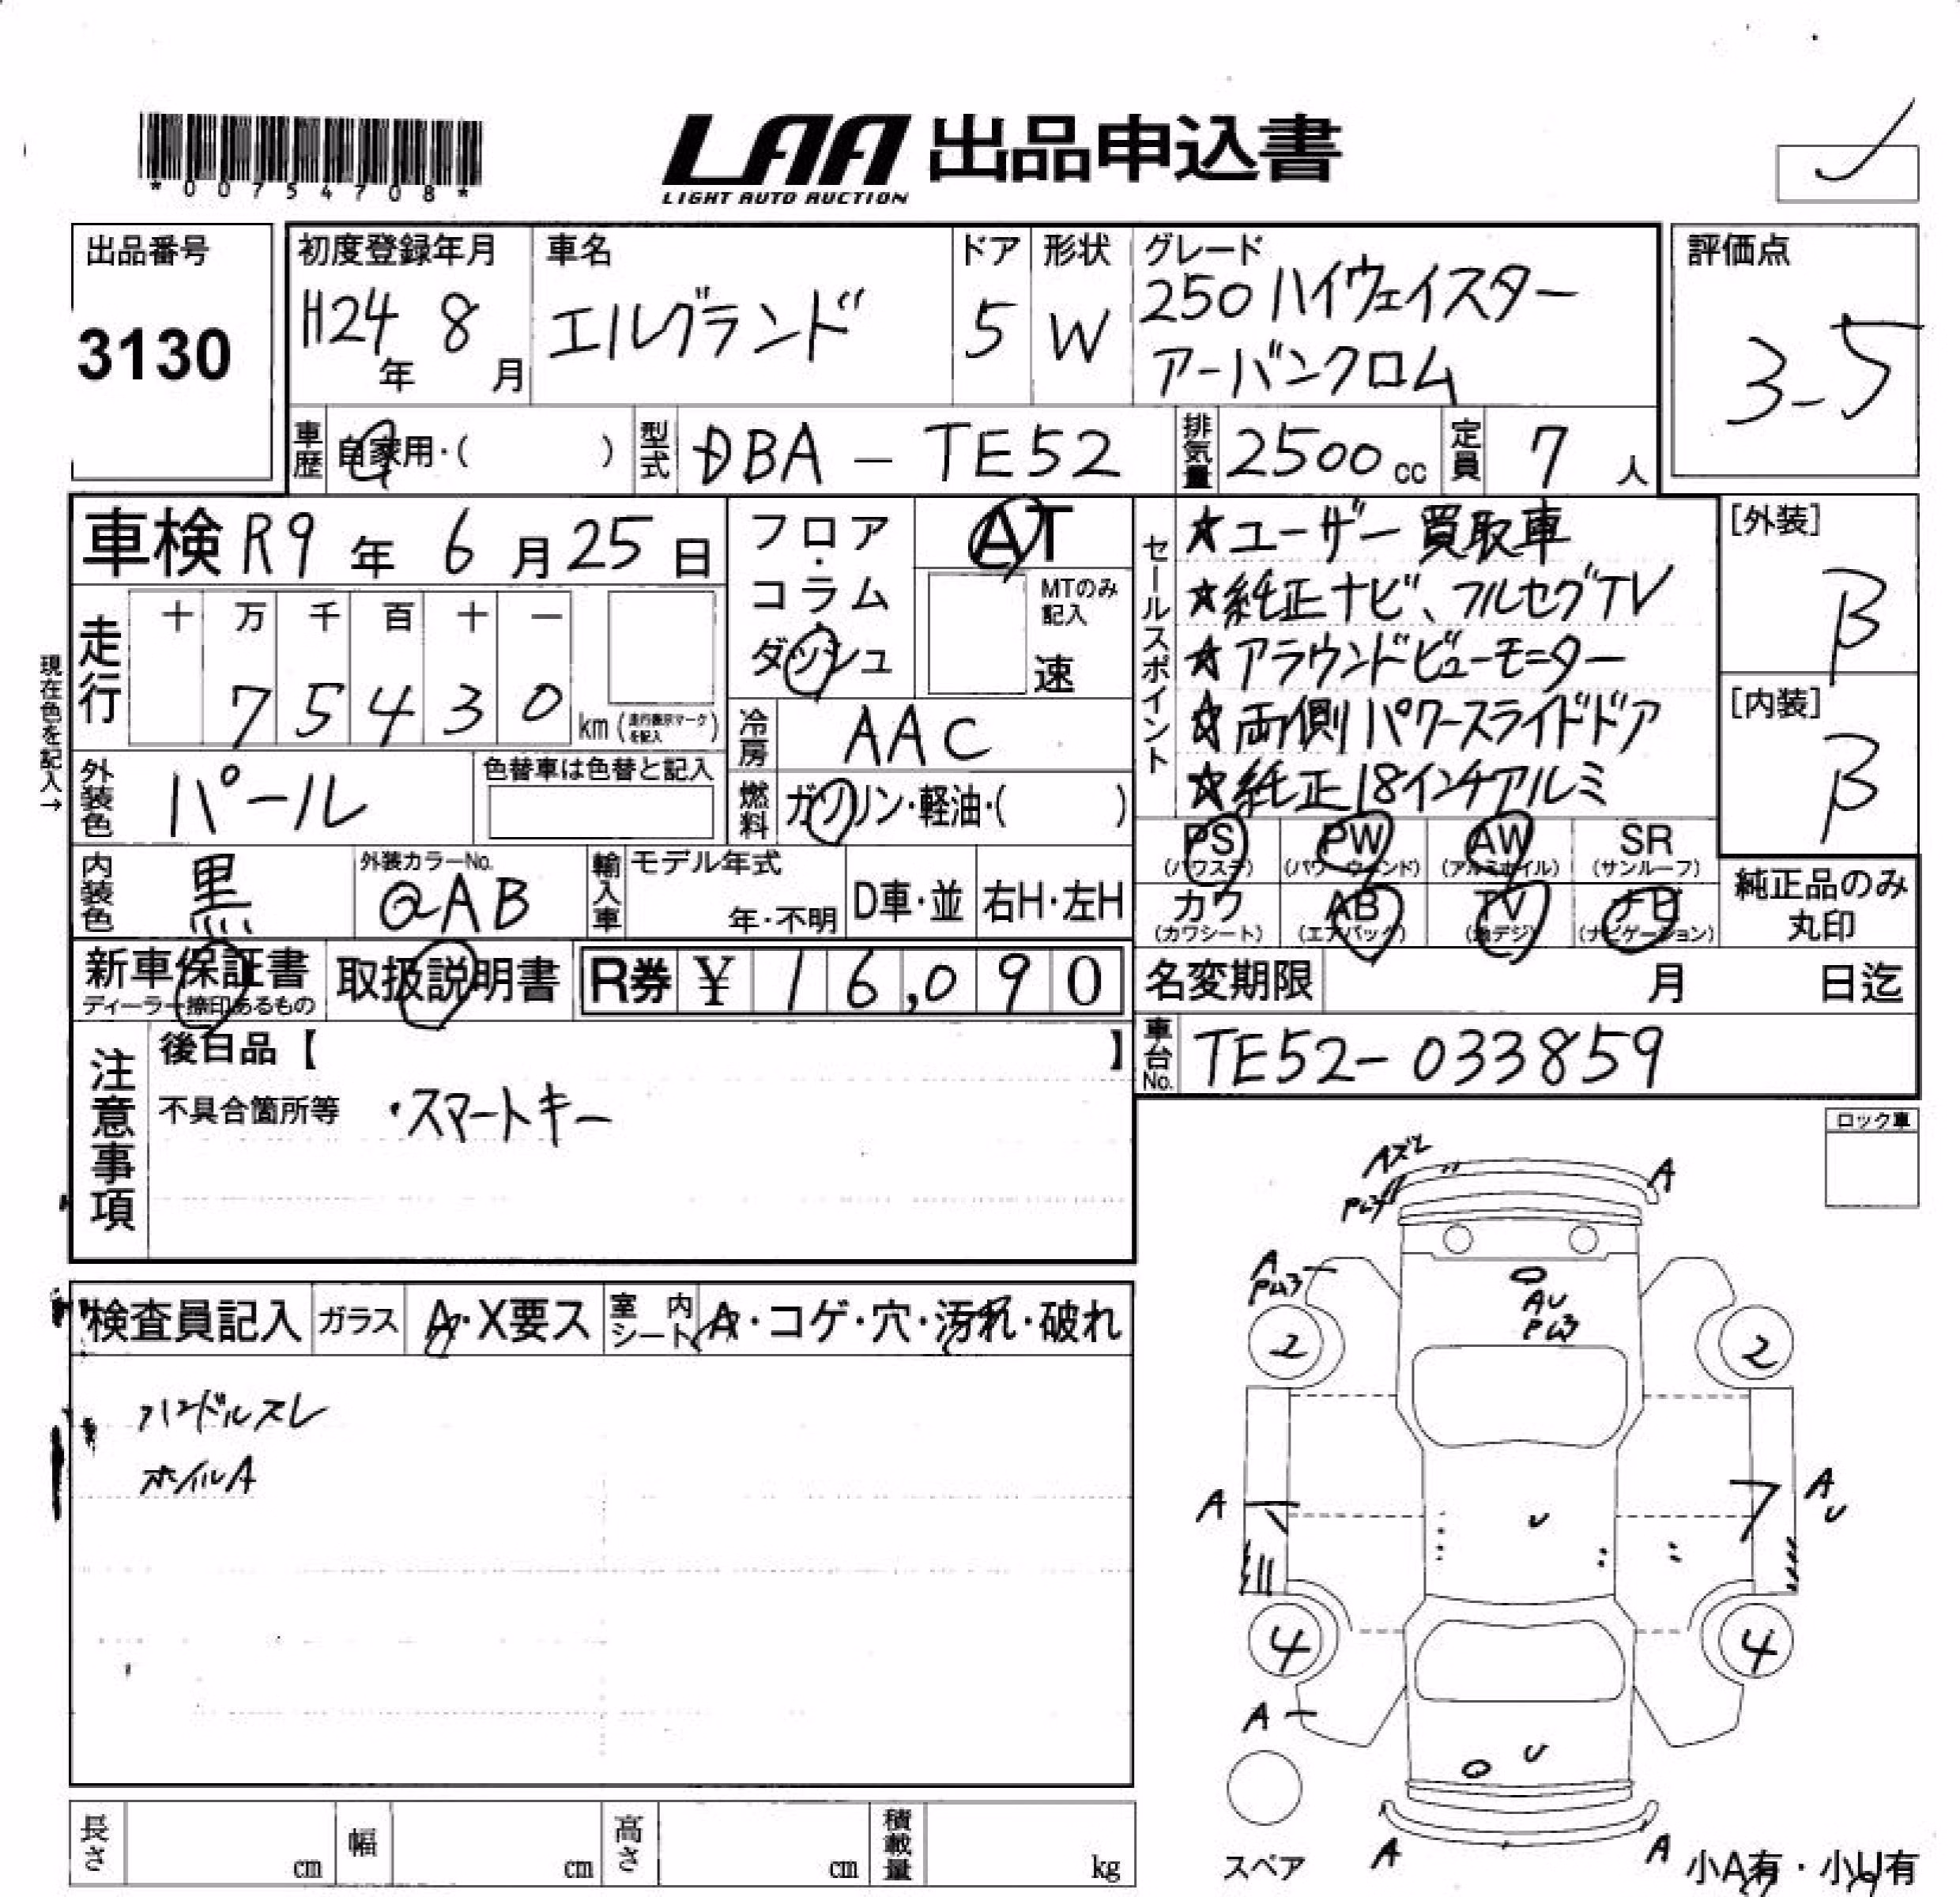 *00754708*
LAA 出品申込書
LIGHT AUTO AUCTION
出品番号
3130
初度登録年月
H24年 8月
車名
エルグランド
ドア
5
形状
W
グレード
250 ハイウェイスター
アーバンクロム
評価点
3.5
車歴
自家用・( )
型式
DBA - TE52
排気量
2500 cc
定員
7 人
車検 R9年 6月25日
フロア・コラム・ダッシュ
AT
MTのみ記入
速
現在色を記入→
走行
十 万 千 百 十 一
7 5 4 3 0 km (走行表示マークを記入)
冷房
AAC
外装色
パール
色替車は色替と記入
燃料
ガソリン・軽油・( )
内装色
黒
外装カラーNo.
QAB
輸入車
モデル年式
年・不明
D車・並
右H・左H
セールスポイント
★ユーザー買取車
★純正ナビ、フルセグTV
★アラウンドビューモニター
★両側パワースライドドア
★純正18インチアルミ
[外装]
B
[内装]
B
PS (パワステ)
PW (パワーウィンド)
AW (アルミホイル)
SR (サンルーフ)
カワ (カワシート)
AB (エアバック)
TV (地デジ)
ナビ (ナビゲーション)
純正品のみ丸印
新車保証書
ディーラー捺印あるもの
取扱説明書
R券 ¥ 16,090
名変期限 月 日迄
車台No.
TE52-033859
注意事項
後日品【 】
不具合箇所等 ・スマートキー
ロック車
検査員記入
ガラス
A・X要ス
室内シート
A・コゲ・穴・汚れ・破れ
ハンドルスレ
ホイルA
A
A
AU
2
2
A
A
U
U
4
4
A
U
A
A
スペア
小A有・小U有
長さ cm
幅 cm
高さ cm
積載量 kg